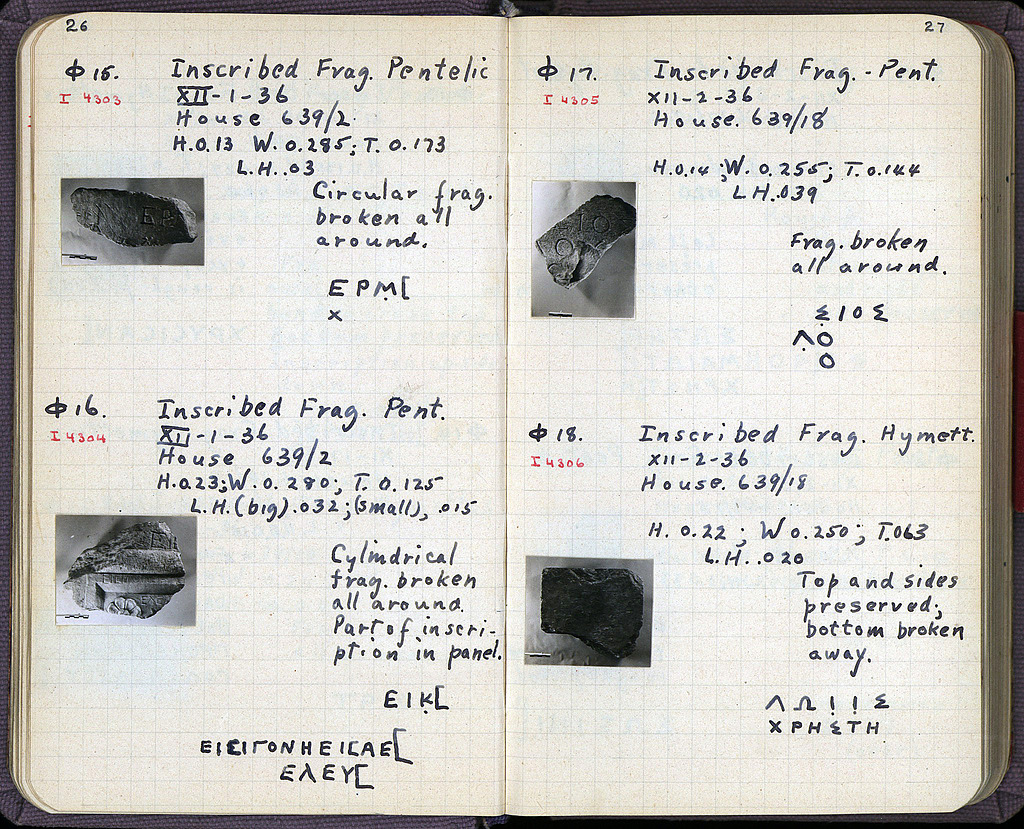 26
Φ 15. Inscribed Frag. Pentelic
I 4303 XII-1-36
House 639/2
H.0.13 W. 0.285; T. 0.173
L.H. .03
Circular frag.
broken all
around.
ΕΡΜ̣[
Χ
Φ 16. Inscribed Frag. Pent.
I 4304 XII-1-36
House 639/2
H.0.23; W. 0.280; T. 0.125
L.H. (big) .032; (small), .015
Cylindrical
frag. broken
all around.
Part of inscri-
ption in panel.
ΕΙΚ̣[
ΕΙΣΙΓΟΝΗΕΙΣΑΕ[
ΕΛΕΥ[
27
Φ 17. Inscribed Frag. - Pent.
I 4305 XII-2-36
House. 639/18
H.0.14; W. 0.255; T. 0.144
L.H. .039
Frag. broken
all around.
Σ̣ΙΟΣ
Λ̣Ο
Ο
Φ 18. Inscribed Frag. Hymett.
I 4306 XII-2-36
House. 639/18
H. 0.22; W 0.250; T. 063
L.H. .020
Top and sides
preserved;
bottom broken
away.
ΛΩΙ̣Ι̣Σ
ΧΡΗΣΤΗ